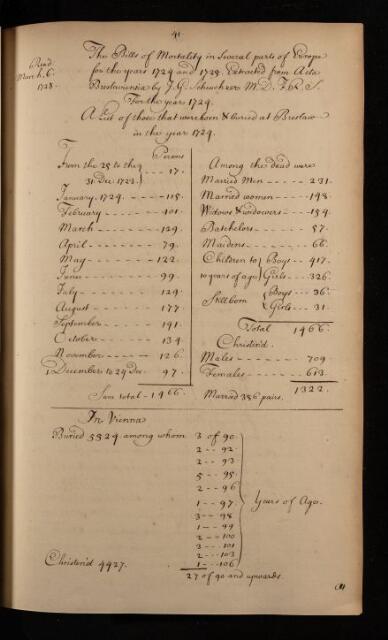 41
Read
March. 6.
1728.
The Bills of Mortality in Several parts of Europe
for the years 1724 and 1728. Extracted from Acta
Breslaviensia by J. G. Scheuchzer M. D. F. R. S.
For the year 1724.
A List of those that were born & buried at Breslaw
in the year 1724.
Persons
From the 25 to the
31 Dec. 1723. } - - 17.
January. 1724. - - - - 115.
February - - - - - 101.
March - - - - - 129.
April - - - - - 79.
May - - - - - 122.
June - - - - - 99.
July - - - - - 129.
August - - - - - 177
September - - - - 191.
October - - - - - 134.
November - - - - - 126.
December to 24 Dec. - 97.
Sum total - 1466.
Among the dead were
Married Men - - - - 231.
Married women - - - - 148.
Widows & widowers - - - 154.
Batchelors - - - - - 57.
Maidens - - - - - 66.
Children to } Boys - - 417.
10 years of age } Girls - - - 326.
Stillborn { Boys - - - 36.
{ Girls - - - 31.
Total 1466.
Christen'd.
Males - - - - - 709
Females - - - - - 613.
1322.
Married 356 pairs.
In Vienna
Buried 5324 among whom 3 of 90.
2 - - 92.
2 - - 93
5 - - 95.
2 - - 96
1 - - 97.
3 - - 98
1 - - 99
2 - - 100
3 - - 101
2 - - 103
1 - - 106
Years of Age.
Christen'd 4427.
27 of 90 and upwards.